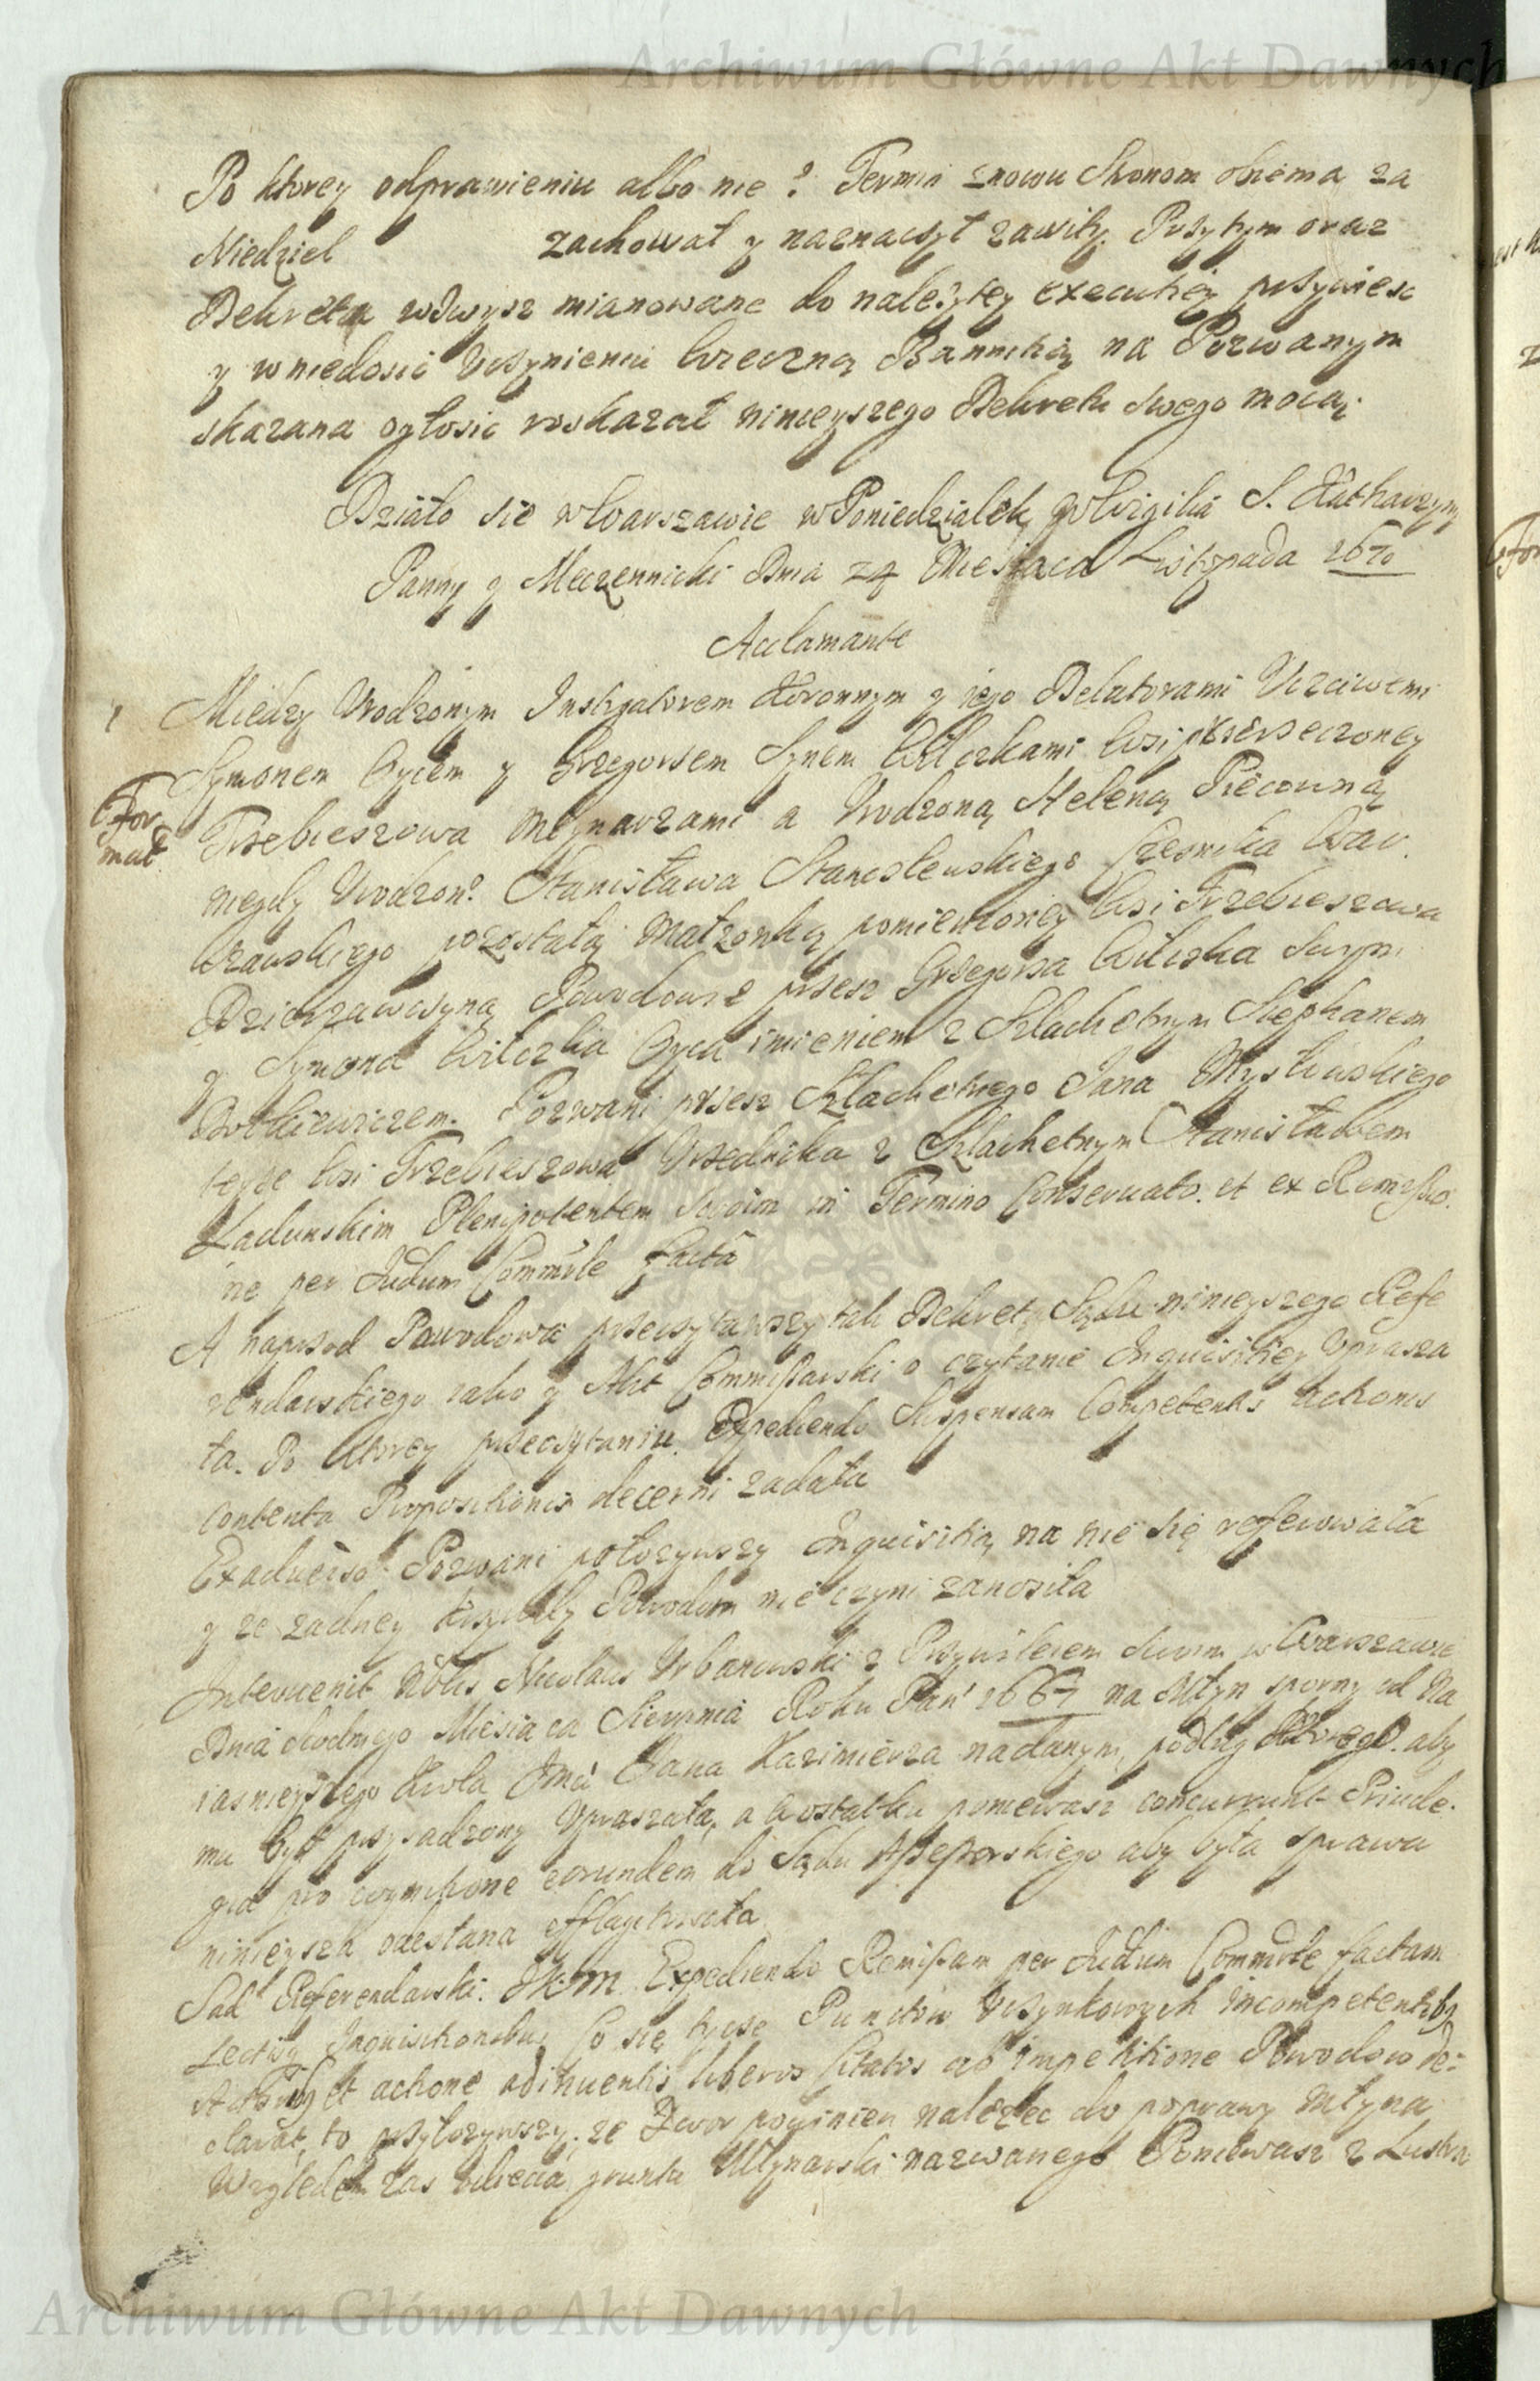 Archiwum Główne Akt Dawnych
Po ktorey odprawieniu albo nie? Termin znowu Stronom obiema za
Niedziel zachował y naznaczył zawity. Przytym oraz
Dekreta wzwysz mianowane do należytey executiey przywiesc
y w niedosić Uczynieniu Wieczną Bannitią na Pozwanym
skazana ogłosic roskazał ninieyszego Dekretu swego mocą.
Działo sie w Warszawie w Poniedziałek w Wigilią S. Katharzyny
Panny y Meczennicki Dnia 24 Miesiaca Listopada 1670
Acclamante
1 Miedzy Urodzonym Instigatorem Koronnym y iego Delatorami Uczciwemi
Symonem Oycem y Grzegorzem Synem Wilczkami Wsi
For
mat
Trzebieszowa Młynarzami a Urodzoną Heleną Piecowną
niegdy Urodzon° Stanisława Stanisławskiego Czesnika War
szawskiego pozostałą Małzonką pomienioney Wsi Trzebieszowa
Dzierzawczyną Powodowie przesz Grzegorza Wilczka swym
y Symona Wilczka Oyca imieniem z Szlachetnym Stephanem
Pozwani przesz Szlachetnego Jana
teyze Wsi Trzebieszowa Urzednika z Szlachetnym Stanisławem
Ladunskim Plenipotentem swoim in Termino Conservato et ex Remissio
ne per Judium Commirle facta
A naprzod Powodowa przeczytawszy tak Dekret Sądu ninieyszego Refe
rendarskiego iako y Akt Commissarski o czytanie Inquisitiey Uprasza
ła. Po ktorey przeczytaniu Expediendo Suspensam Competentis Actionis
contenta Propositionis decerni zadała
Exadverso Pozwani połozywszy Inquisitią na nie się referowała
y ze zadney krzywdy Powodom nie czyni zanosiła
Intervenit Nobilis Nicolaus Urbanowski z Przywileiem swym w Warszawie
Dnia siodmego Miesiaca Sierpnia Roku Pan' 1667 na Młyn sporny od Na
iasnieyszego Krola Jmci Jana Kazimierza nadanym, podług ktorego aby
mu był przysadzony Upraszała, a w ostatku poniewasz concurrunt Privile
gia pro cognitione eorundem do Sądu Assessorskiego aby była sprawa
ninieysza odesłana efflagitowała
Sad Referendarski J K M Expediendo Remissam per Judium Commirle factam
Lectis Inquisitionibus Co się tycze Punctow Uczynkowych incompetentibg
Actoribg et actione adinventis liberos Citatos ab impetitione Powodow de=
clarat, to przyłozywszy. ze Dwor powinien nalezec do poprawy młyna
Względem zas odiecia gruntu Młynarski nazwanego Poniewasz z Lustra
Archiwum Główne Akt Dawnych